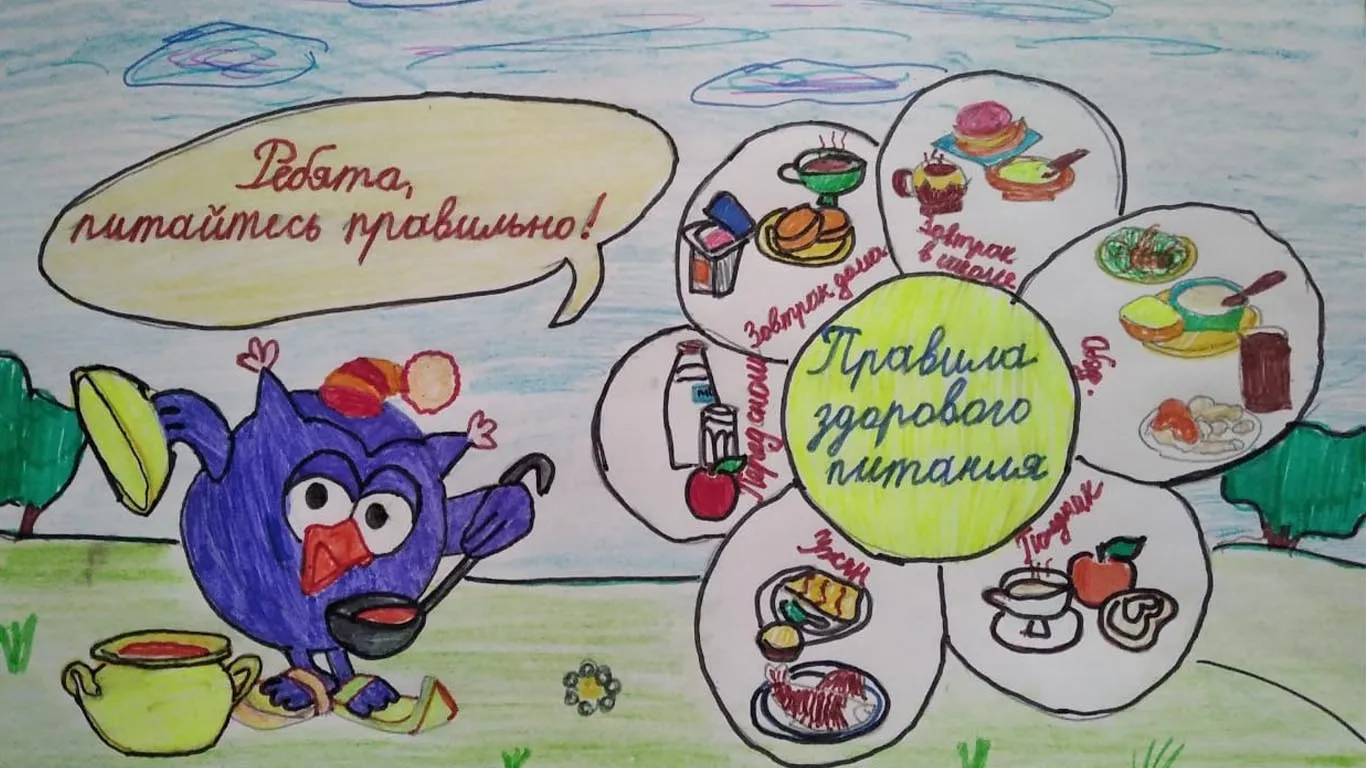 Ребята,
питайтесь правильно!
Завтрак дома
Завтрак
в школе
Обед.
Полдник
Ужин
Перед сном
Правила
здорового
питания